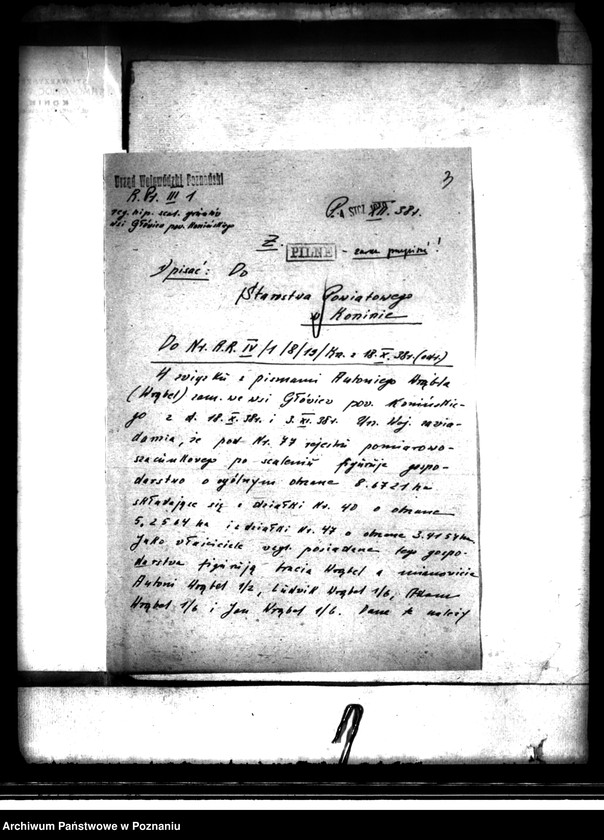 Urząd Wojewódzki Poznański
3
R.Pr. III 1
reg. hip. scal. gruntów
wsi Główiew pow. Konińskiego
STYCZ. 1939
XII. 38 r.
Ż.
PILNE
!
1/ pisać: Do
Starostwa Powiatowego
w Koninie
Do Nr. R.R. IV/1/8/13/Kn. z 18.X.38r. (odr.)
W związku z pismami Antoniego Wróbla
(Wróbel) zam. we wsi Główiew pow. Konińskie-
go z d. 18.X.38r. i 3.XI.38r. Urz. Woj. zawia-
damia, że pod Nr. 77 rejestru pomiarowo-
szacunkowego po scaleniu figuruje gospo-
darstwo o ogólnym obszarze 8.6721 ha
składające się z działki Nr. 40 o obszarze
5,2564 ha i z działki Nr. 47 o obszarze 3.4157 ha.
Jako właściciele wzgl. posiadacze tego gospo-
darstwa figurują bracia Wróbel a mianowicie
Antoni Wróbel 1/2, Ludwik Wróbel 1/6, Adam
Wróbel 1/6 i Jan Wróbel 1/6.
Archiwum Państwowe w Poznaniu